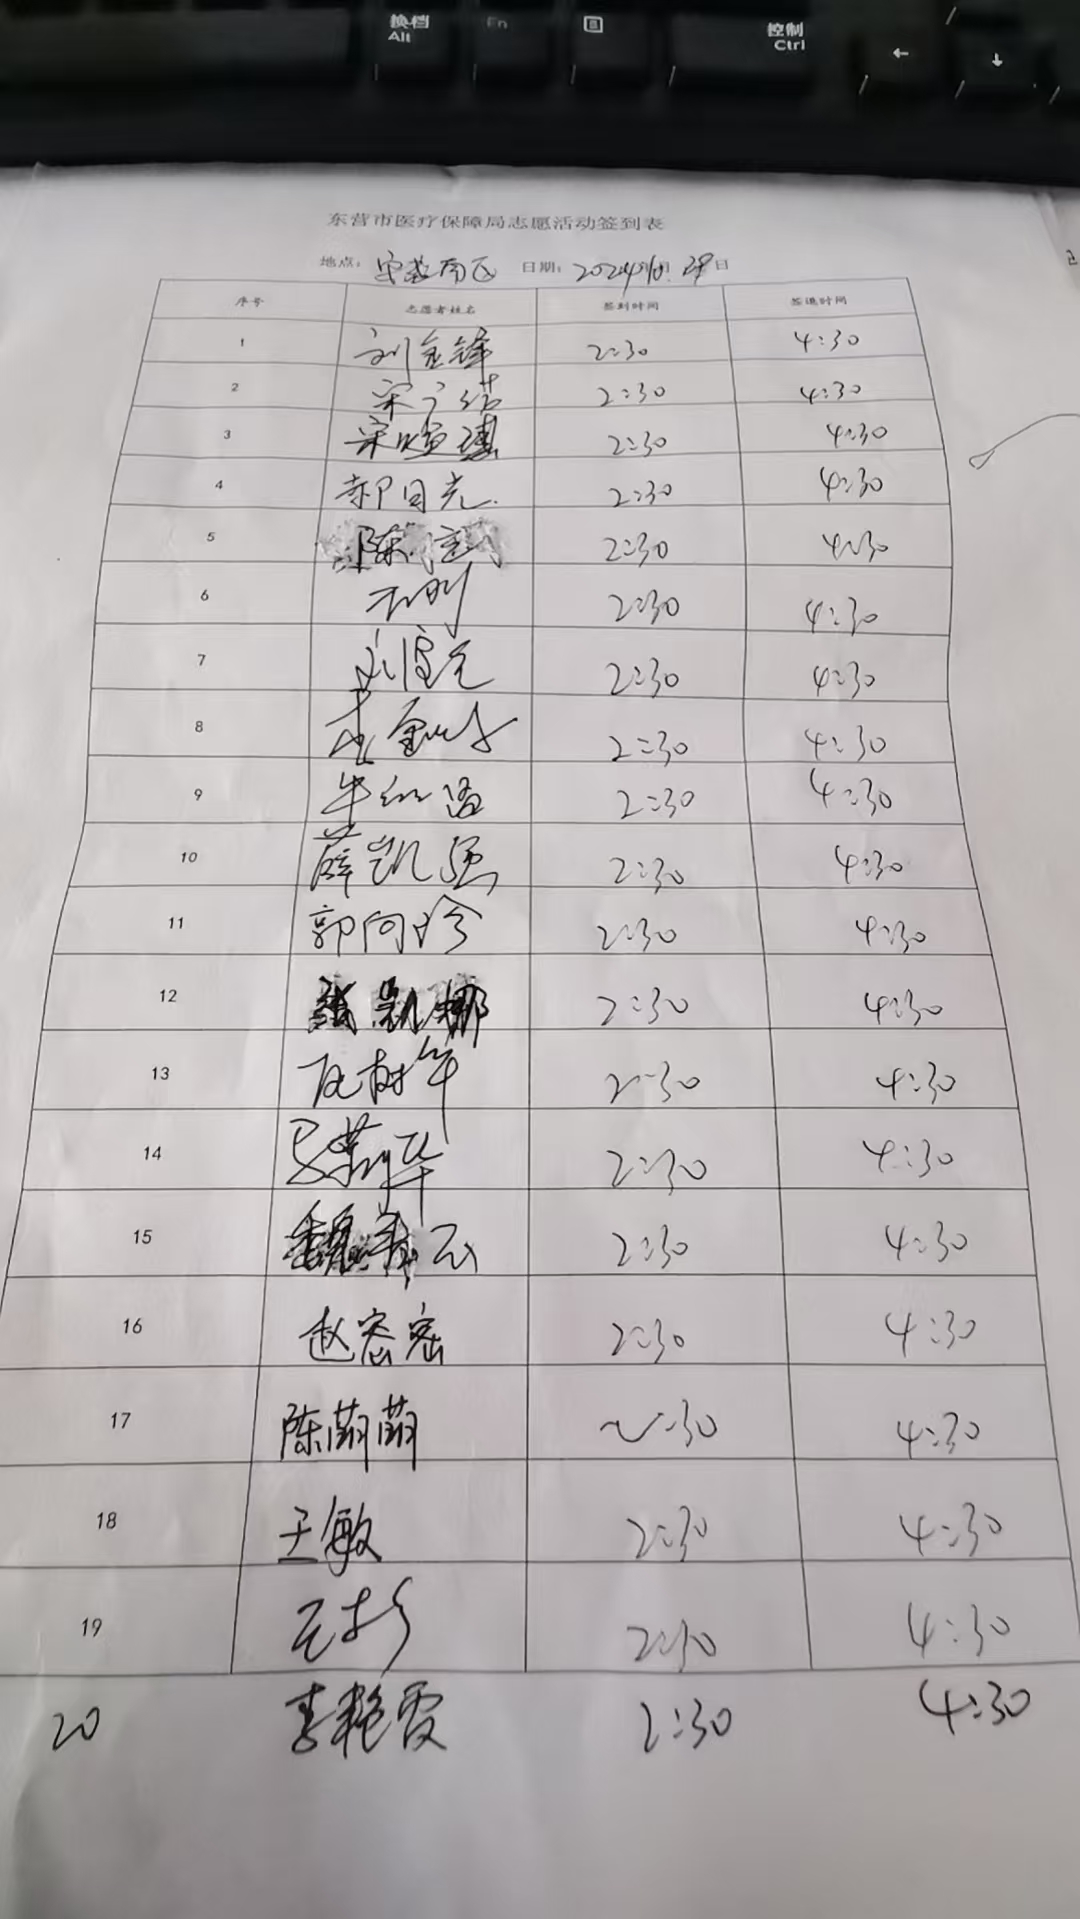 换档
Alt
Fn
控制
Ctrl
←
↓
东营市医疗保障局志愿活动签到表
地点： 日期：2024年10. 29日
序号 志愿者姓名 签到时间 签退时间
1 刘金锋 2:30 4:30
2 宋 2:30 4:30
3 宋煊琪 2:30 4:30
4 郝日光 2:30 4:30
5 陈 2:30 4:30
6 2:30 4:30
7 2:30 4:30
8 2:30 4:30
9 牛 2:30 4:30
10 薛凯强 2:30 4:30
11 郭向珍 2:30 4:30
12 张凯娜 2:30 4:30
13 树年 2:30 4:30
14 马 华 2:30 4:30
15 魏 云 2:30 4:30
16 赵密密 2:30 4:30
17 陈萌萌 2:30 4:30
18 王敏 2:30 4:30
19 2:30 4:30
20 李艳霞 2:30 4:30